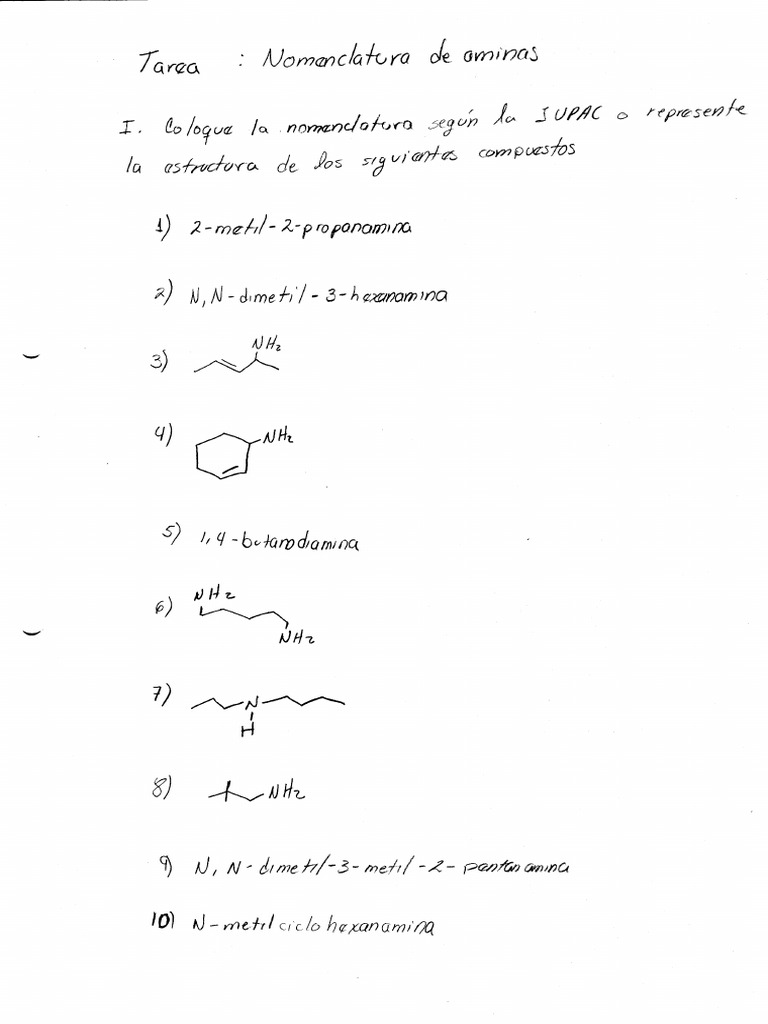 Tarea : Nomenclatura de aminas
I. Coloque la nomenclatura según la IUPAC o represente
la estructura de los siguientes compuestos
1) 2-metil-2-propanamina
2) N,N-dimetil-3-hexanamina
3) NH2
4) NH2
5) 1,4-butanodiamina
6) NH2
NH2
7) N
H
8) NH2
9) N, N-dimetil-3-metil-2-pentanamina
10) N-metilciclohexanamina